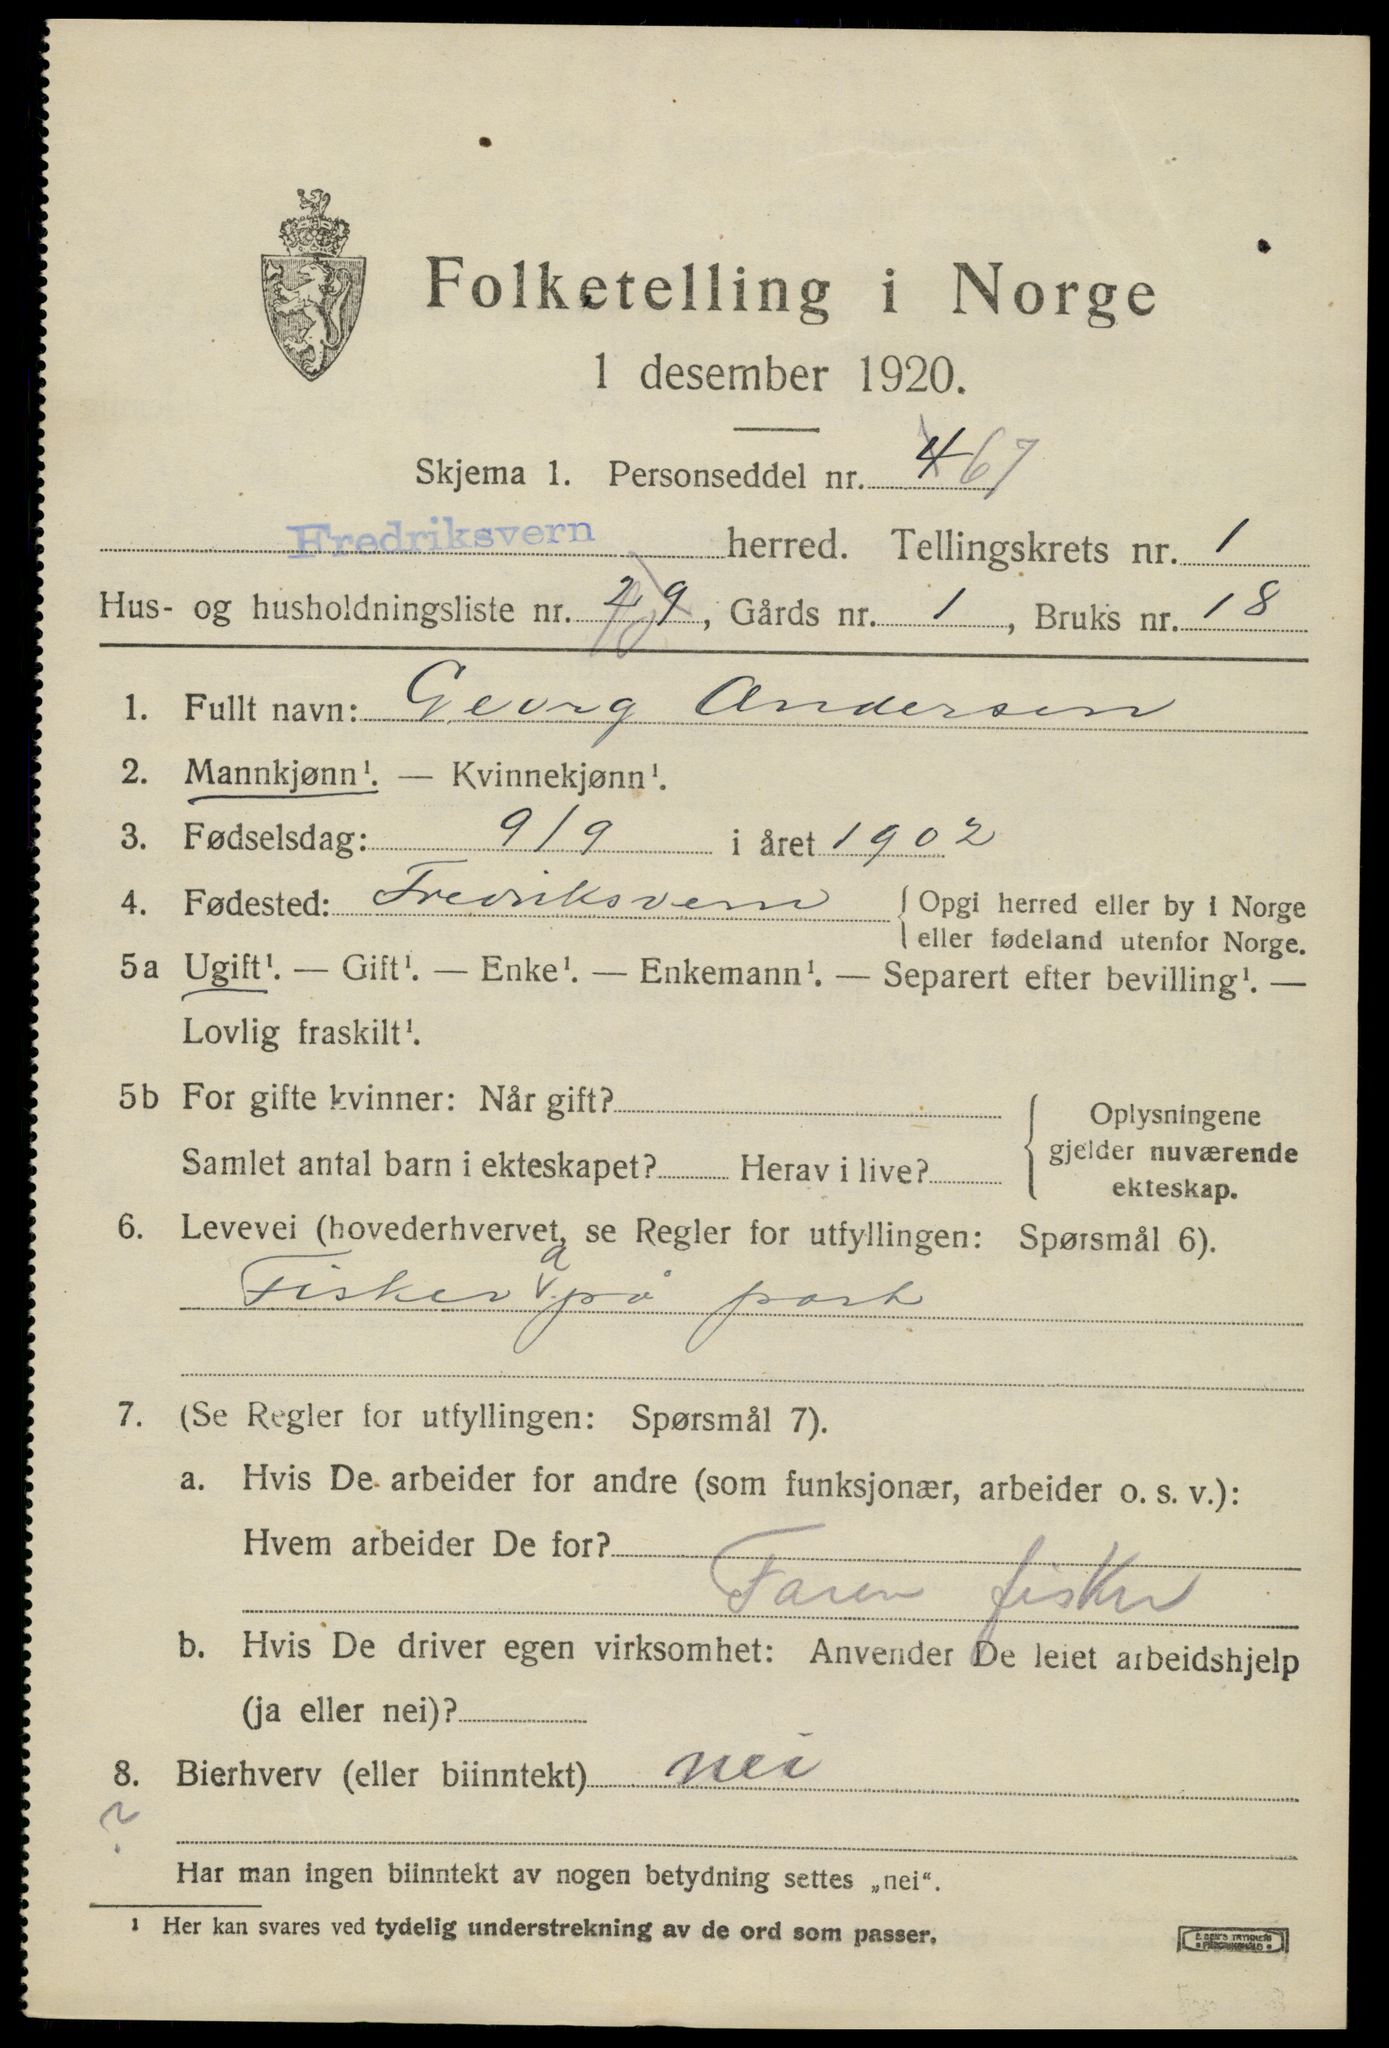 Folketelling i Norge
1 desember 1920.
Skjema 1. Personseddel nr. 4 67
Fredriksvern herred. Tellingskrets nr. 1
Hus- og husholdningsliste nr. 29, Gårds nr. 1, Bruks nr. 18
1. Fullt navn: Georg Andersen
2. Mannkjønn¹. — Kvinnekjønn¹.
3. Fødselsdag: 9/9 i året 1902
4. Fødested: Fredriksvern { Opgi herred eller by i Norge
eller fødeland utenfor Norge.
5a Ugift¹. — Gift¹. — Enke¹. — Enkemann¹. — Separert efter bevilling¹. —
Lovlig fraskilt¹.
5b For gifte kvinner: Når gift?
Samlet antal barn i ekteskapet? Herav i live?
Oplysningene
gjelder nuværende
ekteskap.
6. Levevei (hovederhvervet, se Regler for utfyllingen: Spørsmål 6).
Fisker a på part
7. (Se Regler for utfyllingen: Spørsmål 7).
a. Hvis De arbeider for andre (som funksjonær, arbeider o. s. v.):
Hvem arbeider De for?
Faren fisker
b. Hvis De driver egen virksomhet: Anvender De leiet arbeidshjelp
(ja eller nei)?
8. Bierhverv (eller biinntekt) nei
Har man ingen biinntekt av nogen betydning settes „nei“.
¹ Her kan svares ved tydelig understrekning av de ord som passer.